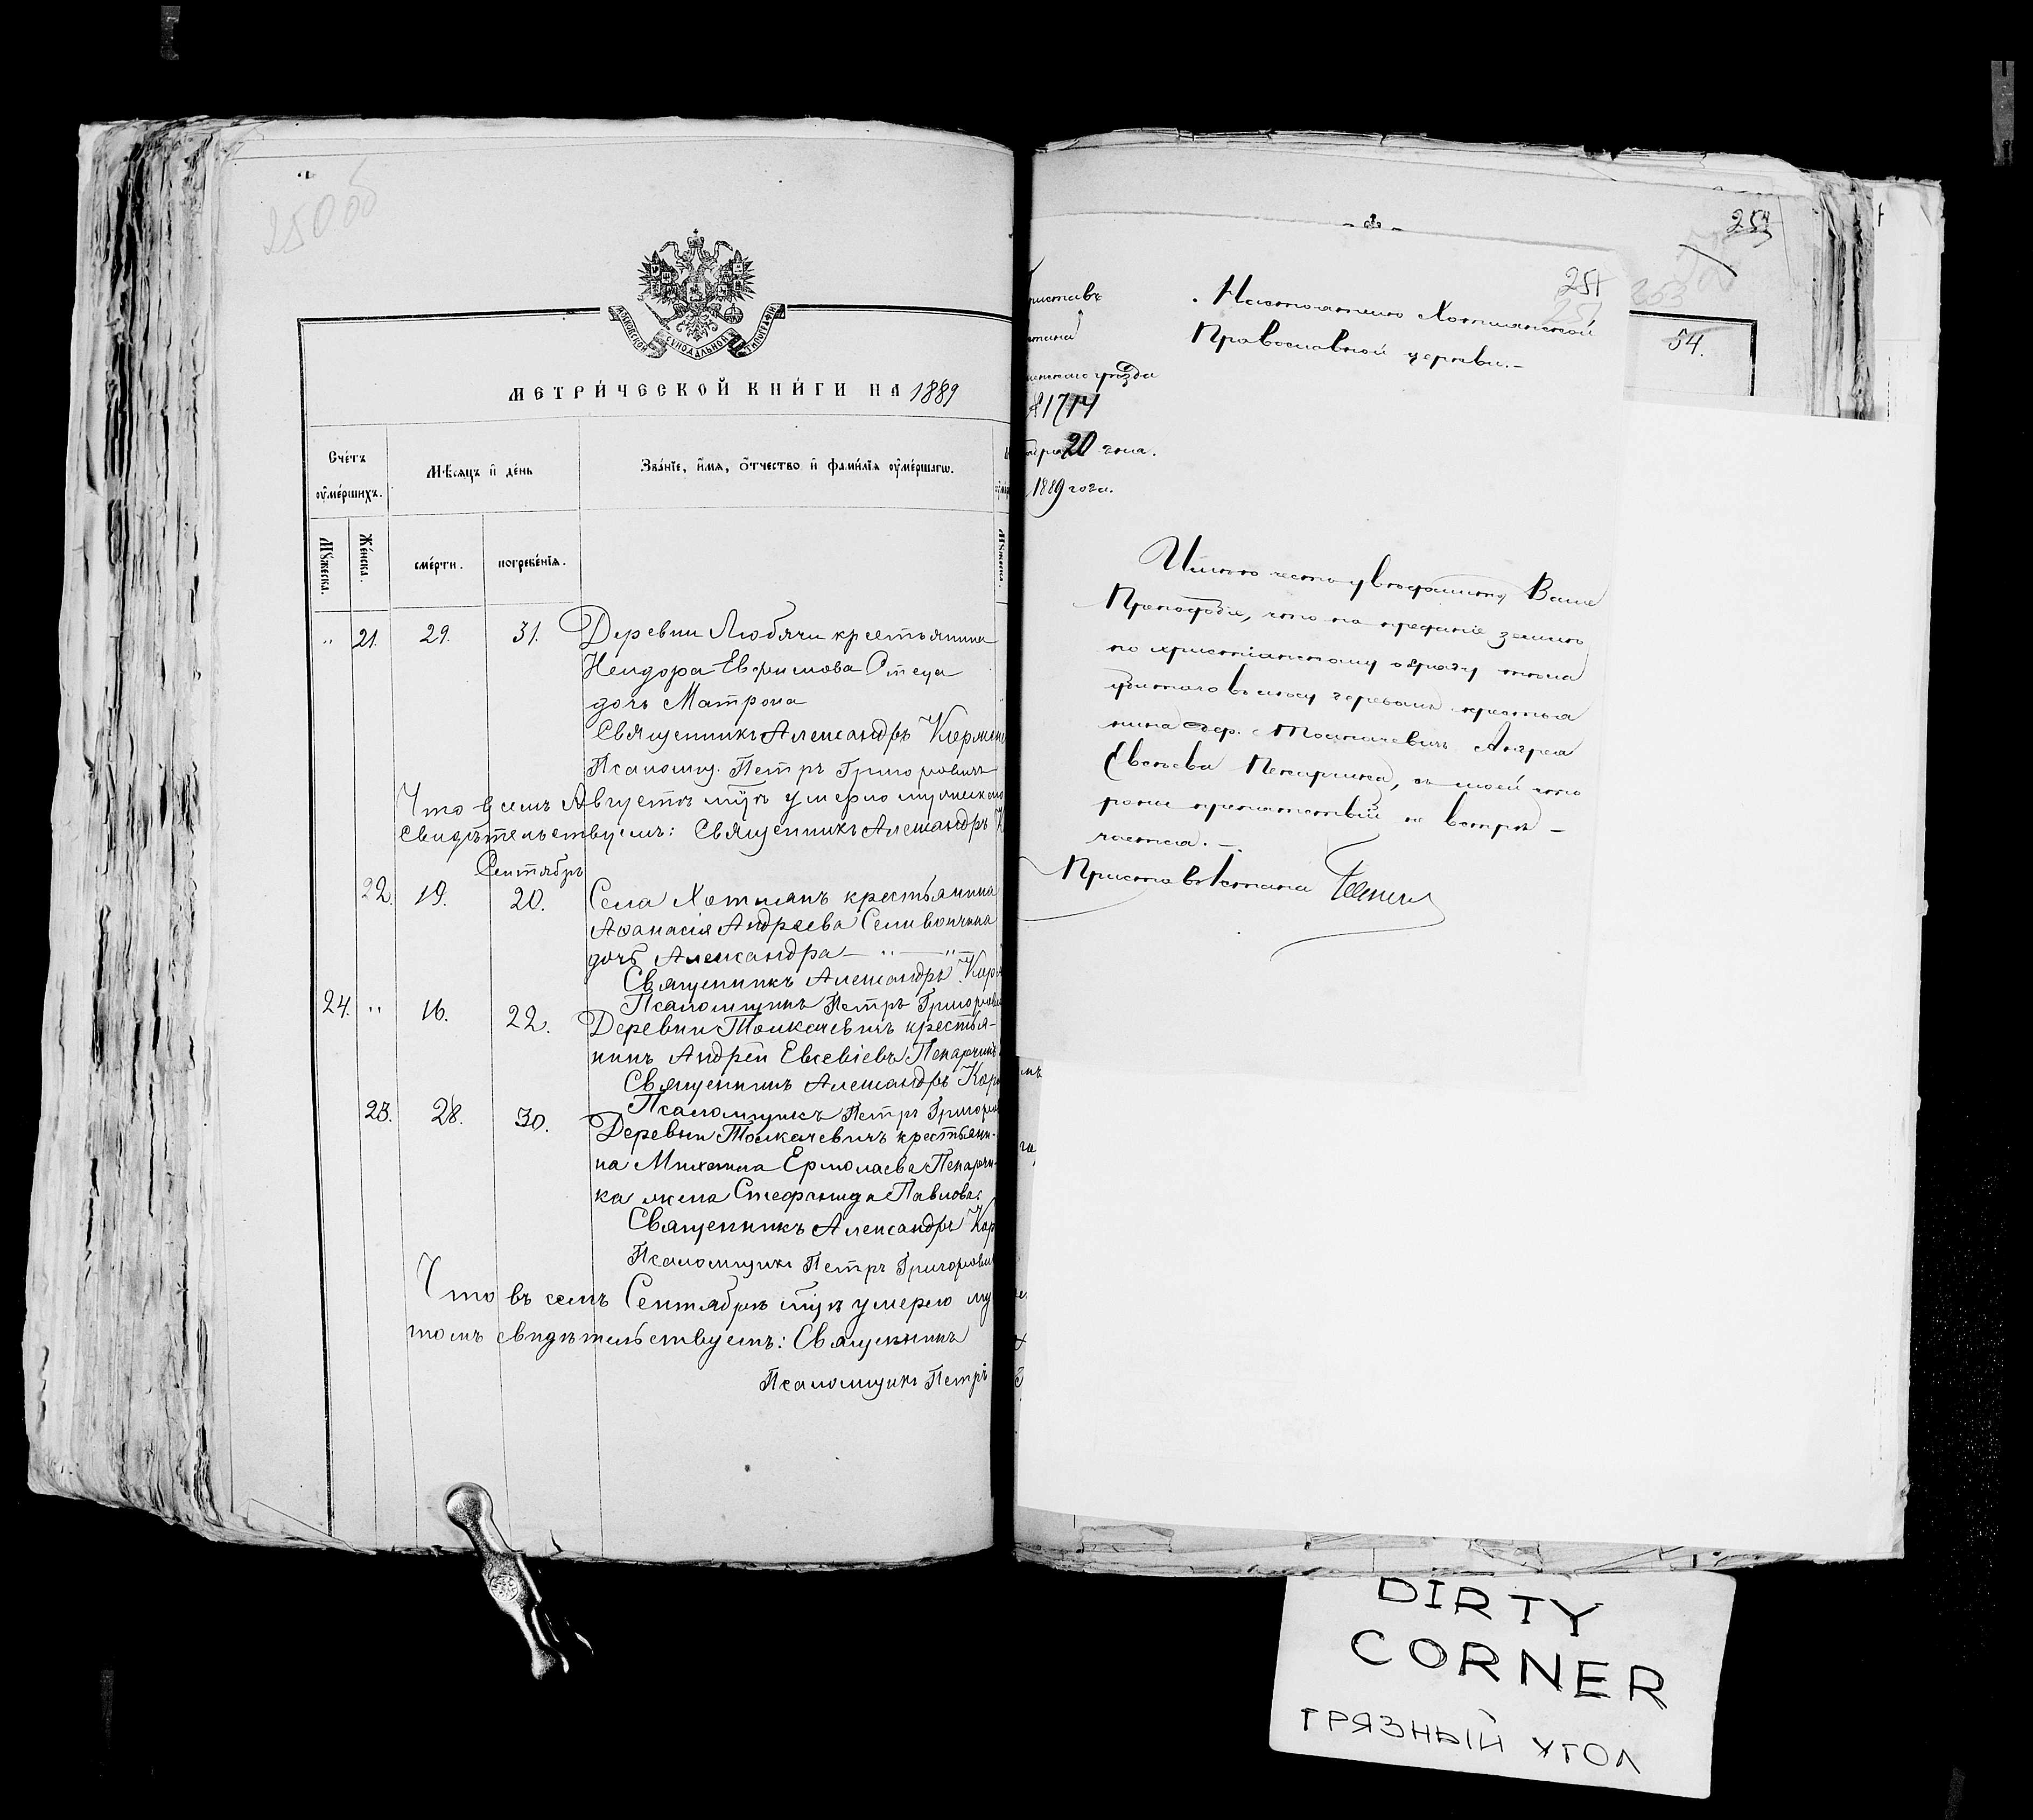 250об
МОСКОВСКОЙ СѴНОДАЛЬНОЙ ТИПОГРАФІИ
МЕТРИ́ЧЕСКОЙ КНИ́ГИ НА 1889
Сче́тъ ᲂу҆ме́ршихъ.
Мѣ́сяцъ и҆ де́нь
Зва́нїе, и҆́мя, ѻ҆́тчество и҆ фами́лїя ᲂу҆ме́ршагѡ.
Мꙋ́жеска.
Же́нска.
сме́рти.
погребе́нїя.
" 21. 29. 31. Деревни Любячи крестьянина
Исидора Евфимова Отеца
дочь Матрона
Священникъ Александръ
Псаломщ. Петръ Григоровичъ
Что в семъ Августѣ мцѣ умерло мужеска
свидѣтельствуемъ: Священникъ Александръ
Сентябрь
22. 19. 20. Села Хотлянъ крестьянина
Аѳанасія Андреева Селивончика
дочь Александра — " — " —
Священникъ Александръ
Псаломщикъ Петръ
24. " 16. 22. Деревни Толкачевичъ крестья-
нинъ Андрей Евсевіевъ Пекарчикъ
Священникъ Александръ
Псаломщикъ Петръ
23. 28. 30. Деревни Толкачевичъ крестьяни-
на Михаила Ермолаева Пекарчи-
ка жена Стефанида Павлова
Священникъ Александръ
Псаломщикъ Петръ
Что въ семъ Сентябрѣ мцѣ умерло
томъ свидѣтельствуемъ: Священникъ
Псаломщикъ Петръ
254
251
253
54.
уѣзда
№1714
20 дня.
1889 года.
Настоятелю Хотлянской
Православной церкви.-
Имѣю честь увѣдомить Ваше
Преподобіе, что на преданіе землѣ
по христіанскому обряду тѣла
убитаго въ лѣсу деревомъ крестья
нина дер. Толкачевичъ Андрея
Евсѣева Пекарчика, съ моей сто
роны препятствій не встрѣ-
чается.-
Приставъ 1 стана
DIRTY
CORNER
ГРЯЗНЫЙ УГОЛ